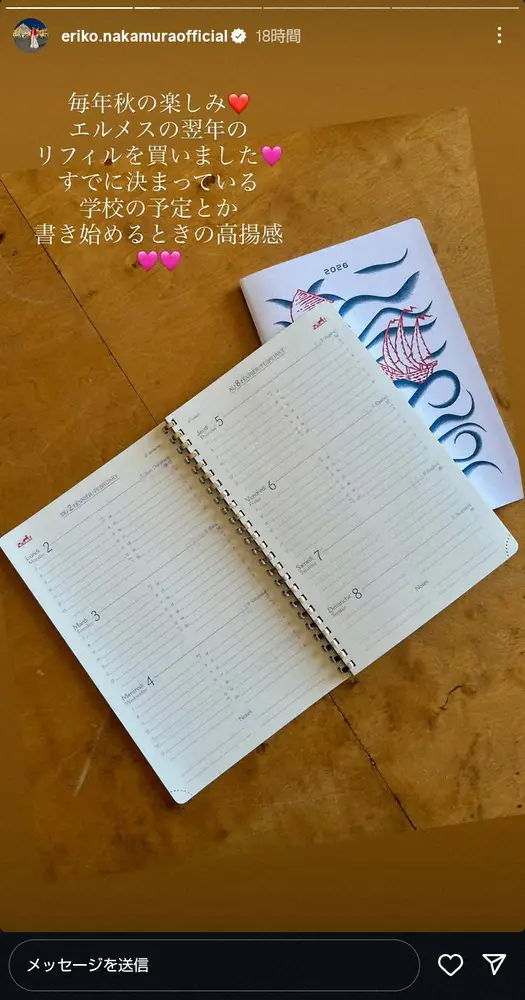 eriko.nakamuraofficial 18時間
毎年秋の楽しみ❤️
エルメスの翌年の
リフィルを買いました🩷
すでに決まっている
学校の予定とか
書き始めるときの高揚感
🩷🩷
2026
Jeudi 5
Thursday
Vendredi 6
Friday
Samedi 7
Saturday
Dimanche 8
Sunday
Notes
Lundi 2
Monday
Mardi 3
Tuesday
Mercredi 4
Wednesday
Notes
メッセージを送信